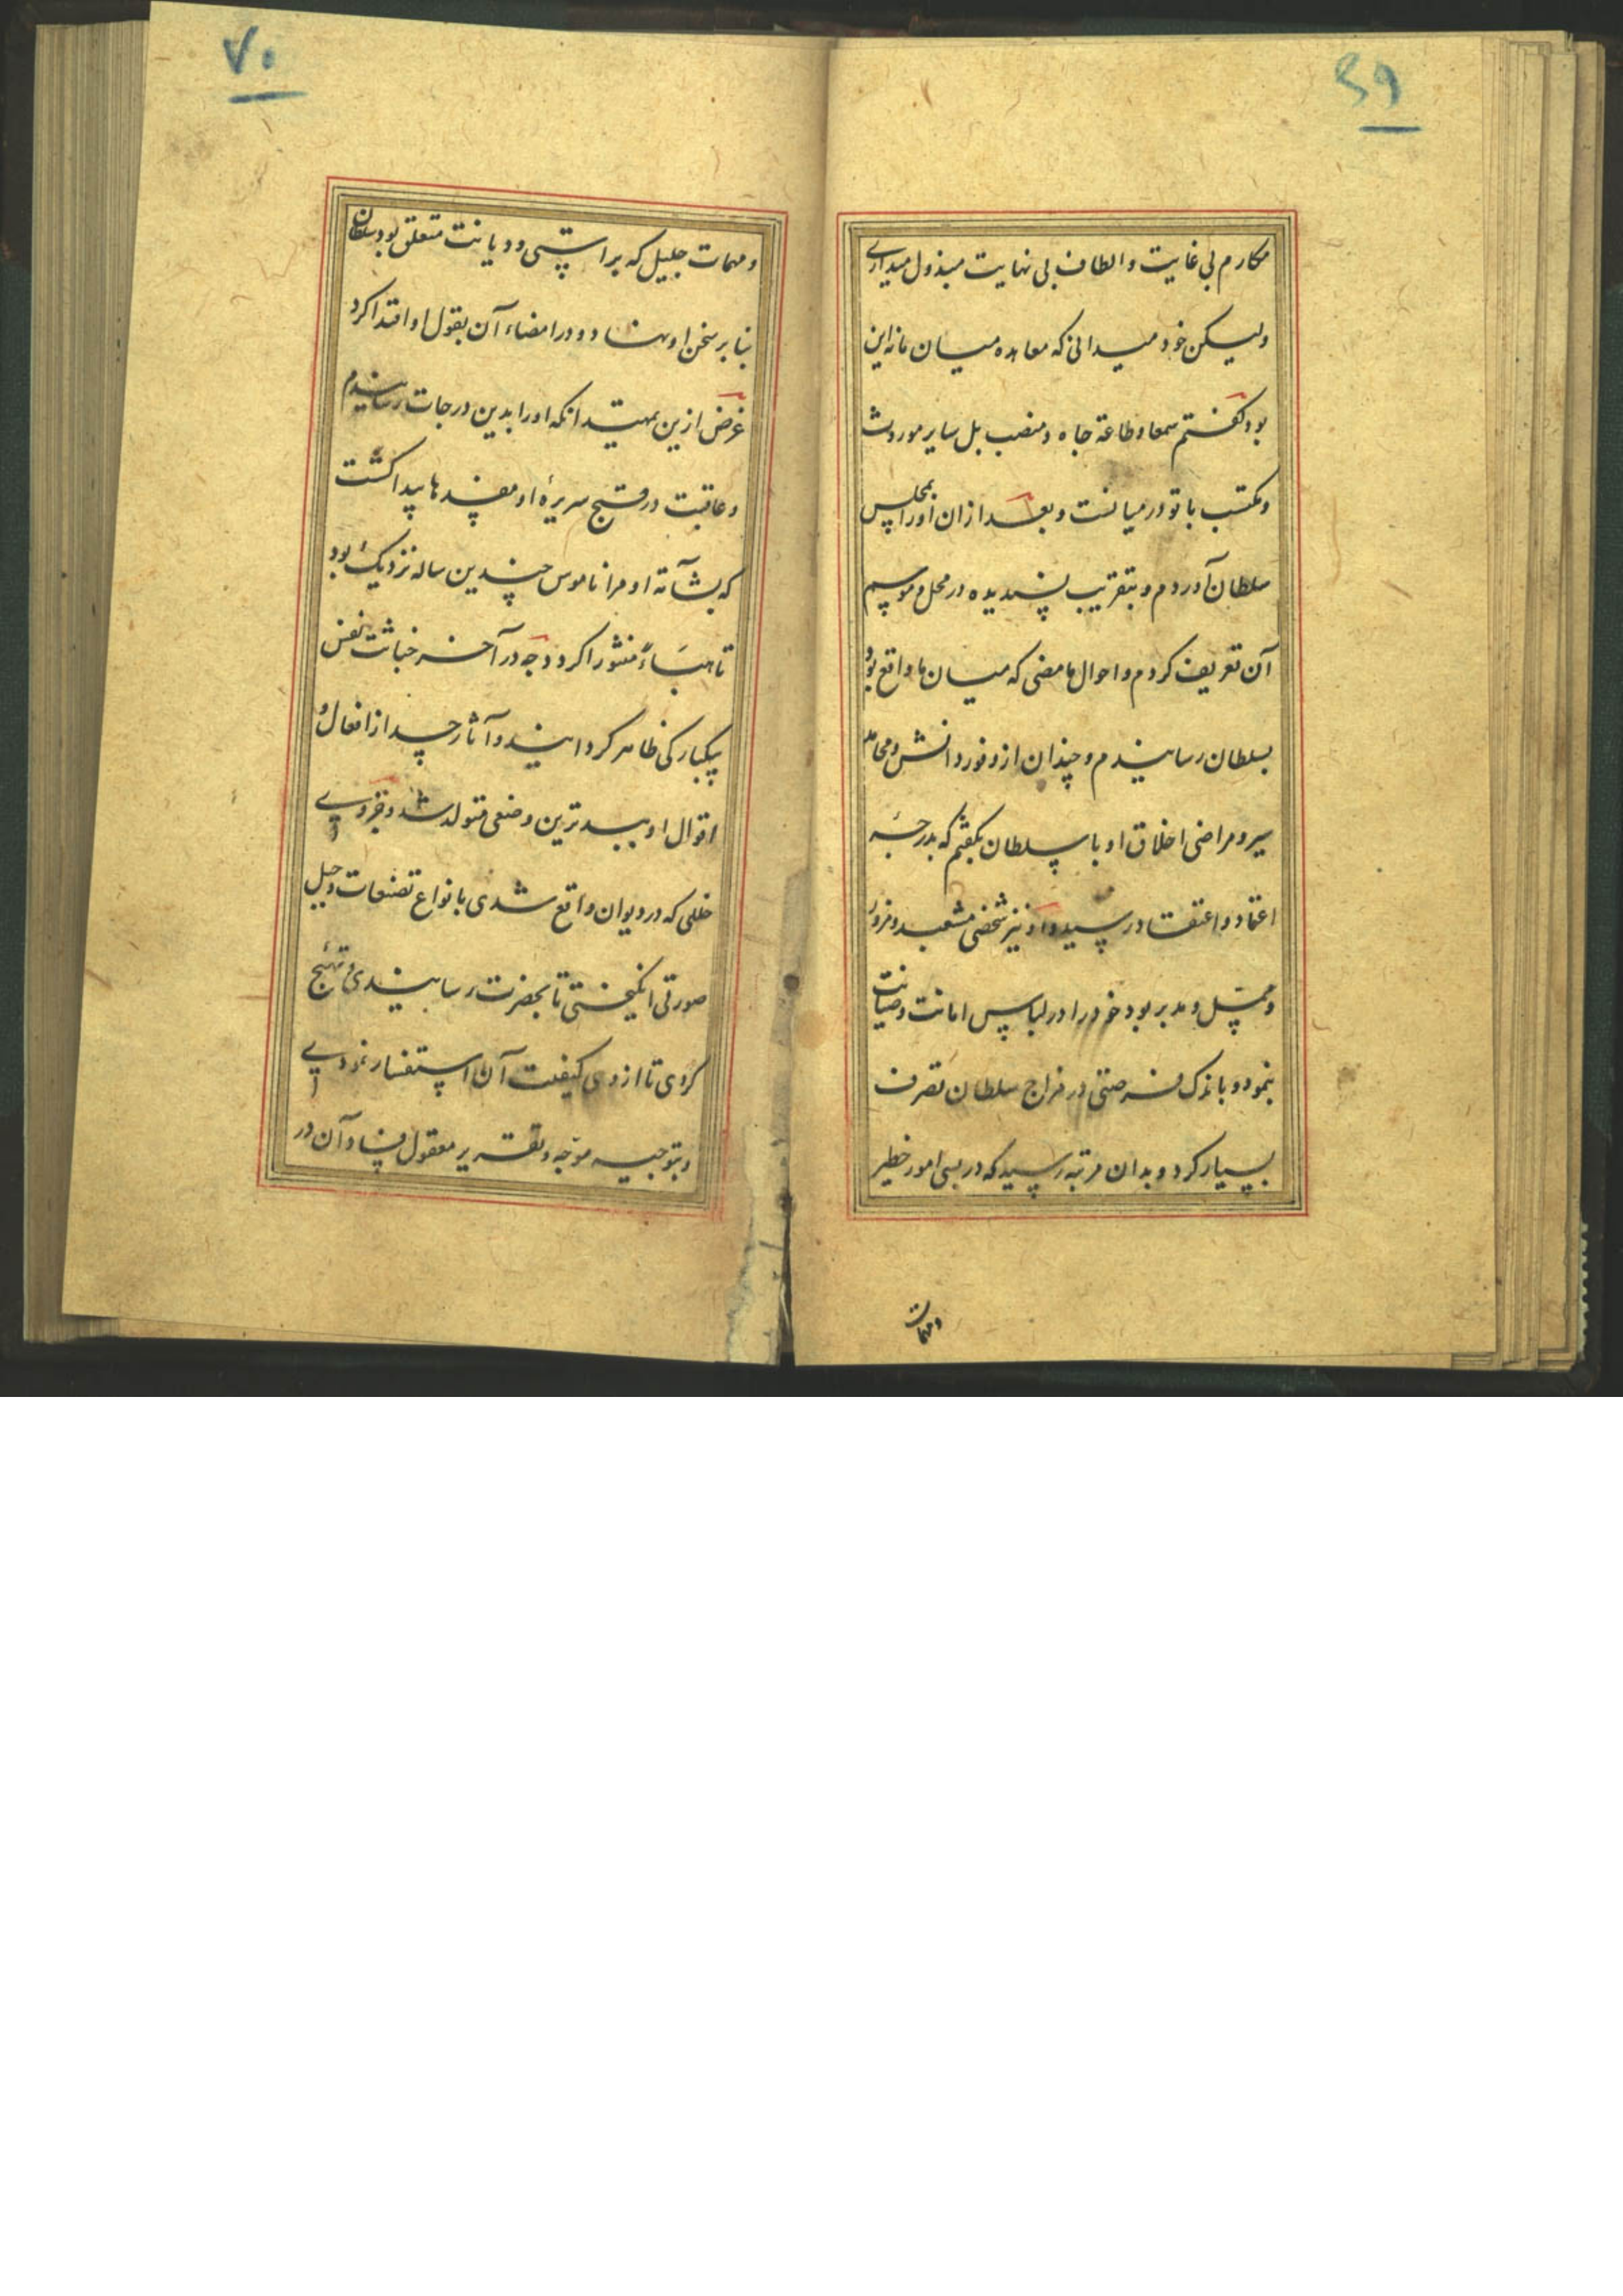 ۶۹
مکارم بی غایت والطاف بی نهایت مبذول میداری
ولیکن خود میدانی که معاهده میان ما نه این
بود کفتم سمعا وطاعة جاه ومنصب بل سایر موروث
ومکتسب با تو در میانست وبعد ازان او را بمجلس
سلطان آوردم وبتقریب پسندیده در محل وموسم
آن تعریف کردم واحوال ما مضی که میان ما واقع بود
بسلطان رسانیدم وچندان از وفور دانش ومحامد
سیر ومراضی اخلاق او با سلطان بکفتم که بدرجهٔ
اعتماد واعتقاد رسید واو نیز شخصی مشعبد ومزور
و ومدبر بود خود را در لباس امانت وصیانت
بنمود وباندک فرصتی در مزاج سلطان تصرف
بسیار کرد وبدان مرتبه رسید که در بسی امور خطیر
ومهمات
۷۰
ومهمات جلیل که براستی ودیانت متعلق بود سلطان
بنا بر سخن او نهاد ودر امضاء آن بقول او اقتدا کرد
غرض ازین تمهید انکه او را بدین درجات رسانیدم
وعاقبت در قبح سریرهٔ او مفسدها پیدا کشت
که بشآمة او مرا ناموس چندین ساله نزدیک بود
تا هباءً منثورا کردد چه در آخر خباثت نفس
یکبارکی ظاهر کردانید وآثار حسد از افعال و
اقوال او ببدترین وضعی متولد شد وجزوی
خللی که در دیوان واقع شدی بانواع تصنعات وحیل
صورتی انکیختی تا بحضرت رسانیدی وتهییج
کردی تا ازوی کیفیت آن استفسار نمودی
وبتوجیه موجه وتقریر معقول فساد آن در